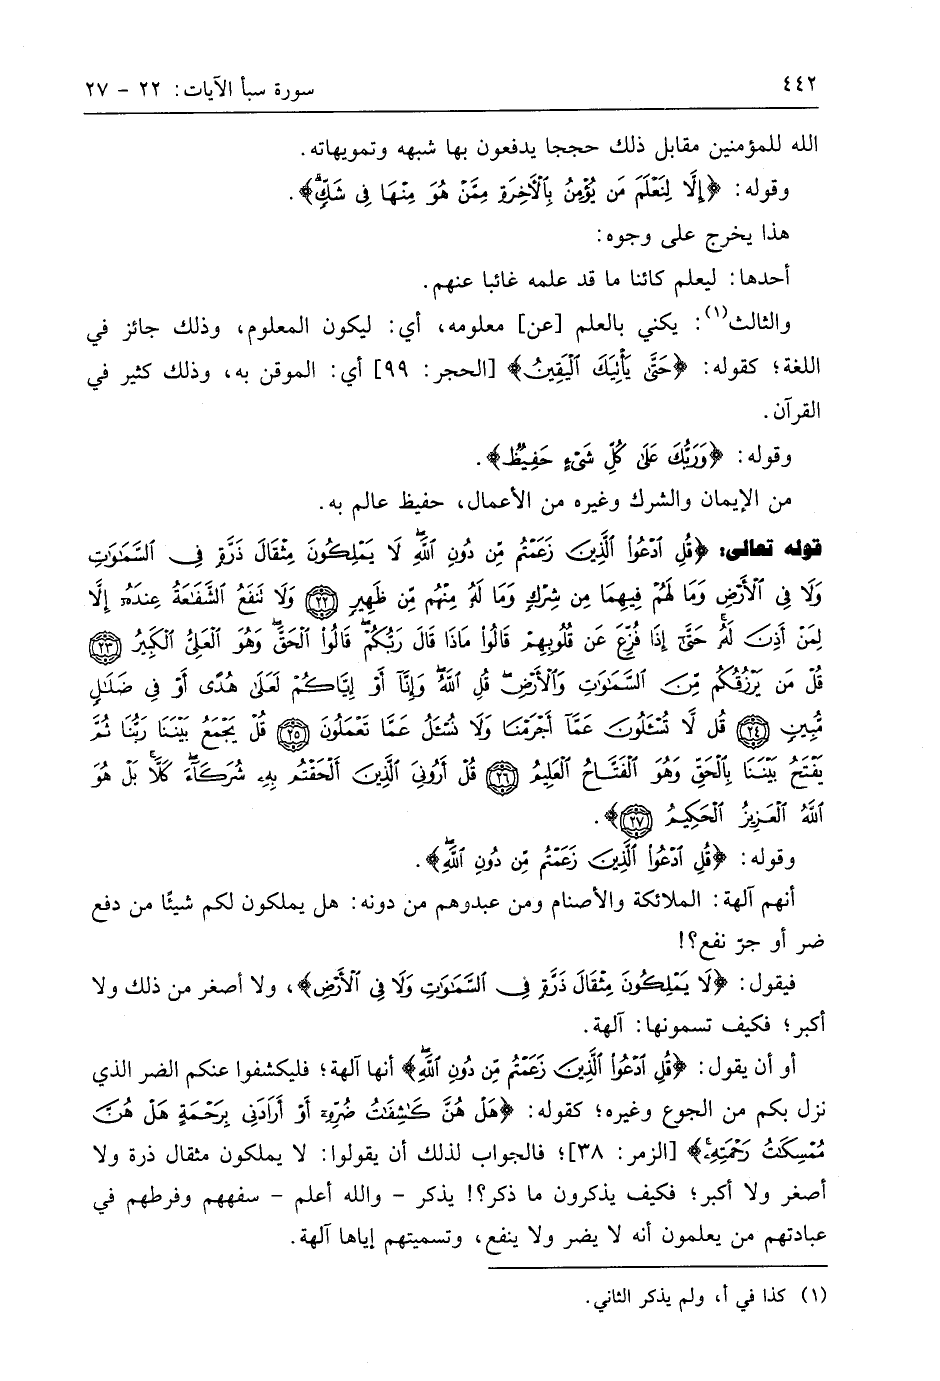 ٤٤٢ سورة سبأ الآيات: ٢٢ - ٢٧
الله للمؤمنين مقابل ذلك حججا يدفعون بها شبهه وتمويهاته.
وقوله: ﴿إِلَّا لِنَعْلَمَ مَن يُؤْمِنُ بِٱلْأَخِرَةِ مِمَّنْ هُوَ مِنْهَا فِى شَكٍّۗ﴾.
هذا يخرج على وجوه:
أحدها: ليعلم كائنا ما قد علمه غائبا عنهم.
والثالث(١): يكني بالعلم [عن] معلومه، أي: ليكون المعلوم، وذلك جائز في
اللغة؛ كقوله: ﴿حَتَّىٰ يَأْتِيَكَ ٱلْيَقِينُ﴾ [الحجر: ٩٩] أي: الموقن به، وذلك كثير في
القرآن.
وقوله: ﴿وَرَبُّكَ عَلَىٰ كُلِّ شَىْءٍ حَفِيظٌ﴾.
من الإيمان والشرك وغيره من الأعمال، حفيظ عالم به.
قوله تعالى: ﴿قُلِ ٱدْعُوا۟ ٱلَّذِينَ زَعَمْتُم مِّن دُونِ ٱللَّهِۖ لَا يَمْلِكُونَ مِثْقَالَ ذَرَّةٍ فِى ٱلسَّمَٰوَٰتِ
وَلَا فِى ٱلْأَرْضِ وَمَا لَهُمْ فِيهِمَا مِن شِرْكٍ وَمَا لَهُۥ مِنْهُم مِّن ظَهِيرٍ ٢٢ وَلَا تَنفَعُ ٱلشَّفَٰعَةُ عِندَهُۥٓ إِلَّا
لِمَنْ أَذِنَ لَهُۥۚ حَتَّىٰٓ إِذَا فُزِّعَ عَن قُلُوبِهِمْ قَالُوا۟ مَاذَا قَالَ رَبُّكُمْۖ قَالُوا۟ ٱلْحَقَّۖ وَهُوَ ٱلْعَلِىُّ ٱلْكَبِيرُ ٢٣
قُلْ مَن يَرْزُقُكُم مِّنَ ٱلسَّمَٰوَٰتِ وَٱلْأَرْضِۖ قُلِ ٱللَّهُۖ وَإِنَّآ أَوْ إِيَّاكُمْ لَعَلَىٰ هُدًى أَوْ فِى ضَلَٰلٍ
مُّبِينٍ ٢٤ قُل لَّا تُسْـَٔلُونَ عَمَّآ أَجْرَمْنَا وَلَا نُسْـَٔلُ عَمَّا تَعْمَلُونَ ٢٥ قُلْ يَجْمَعُ بَيْنَنَا رَبُّنَا ثُمَّ
يَفْتَحُ بَيْنَنَا بِٱلْحَقِّ وَهُوَ ٱلْفَتَّاحُ ٱلْعَلِيمُ ٢٦ قُلْ أَرُونِىَ ٱلَّذِينَ أَلْحَقْتُم بِهِۦ شُرَكَآءَۖ كَلَّاۚ بَلْ هُوَ
ٱللَّهُ ٱلْعَزِيزُ ٱلْحَكِيمُ ٢٧﴾.
وقوله: ﴿قُلِ ٱدْعُوا۟ ٱلَّذِينَ زَعَمْتُم مِّن دُونِ ٱللَّهِۖ﴾.
أنهم آلهة: الملائكة والأصنام ومن عبدوهم من دونه: هل يملكون لكم شيئًا من دفع
ضر أو جرّ نفع؟!
فيقول: ﴿لَا يَمْلِكُونَ مِثْقَالَ ذَرَّةٍ فِى ٱلسَّمَٰوَٰتِ وَلَا فِى ٱلْأَرْضِ﴾، ولا أصغر من ذلك ولا
أكبر؛ فكيف تسمونها: آلهة.
أو أن يقول: ﴿قُلِ ٱدْعُوا۟ ٱلَّذِينَ زَعَمْتُم مِّن دُونِ ٱللَّهِۖ﴾ أنها آلهة؛ فليكشفوا عنكم الضر الذي
نزل بكم من الجوع وغيره؛ كقوله: ﴿هَلْ هُنَّ كَٰشِفَٰتُ ضُرِّهِۦٓ أَوْ أَرَادَنِى بِرَحْمَةٍ هَلْ هُنَّ
مُمْسِكَٰتُ رَحْمَتِهِۦۚ﴾ [الزمر: ٣٨]؛ فالجواب لذلك أن يقولوا: لا يملكون مثقال ذرة ولا
أصغر ولا أكبر؛ فكيف يذكرون ما ذكر؟! يذكر - والله أعلم - سفههم وفرطهم في
عبادتهم من يعلمون أنه لا يضر ولا ينفع، وتسميتهم إياها آلهة.
(١) كذا في أ، ولم يذكر الثاني.